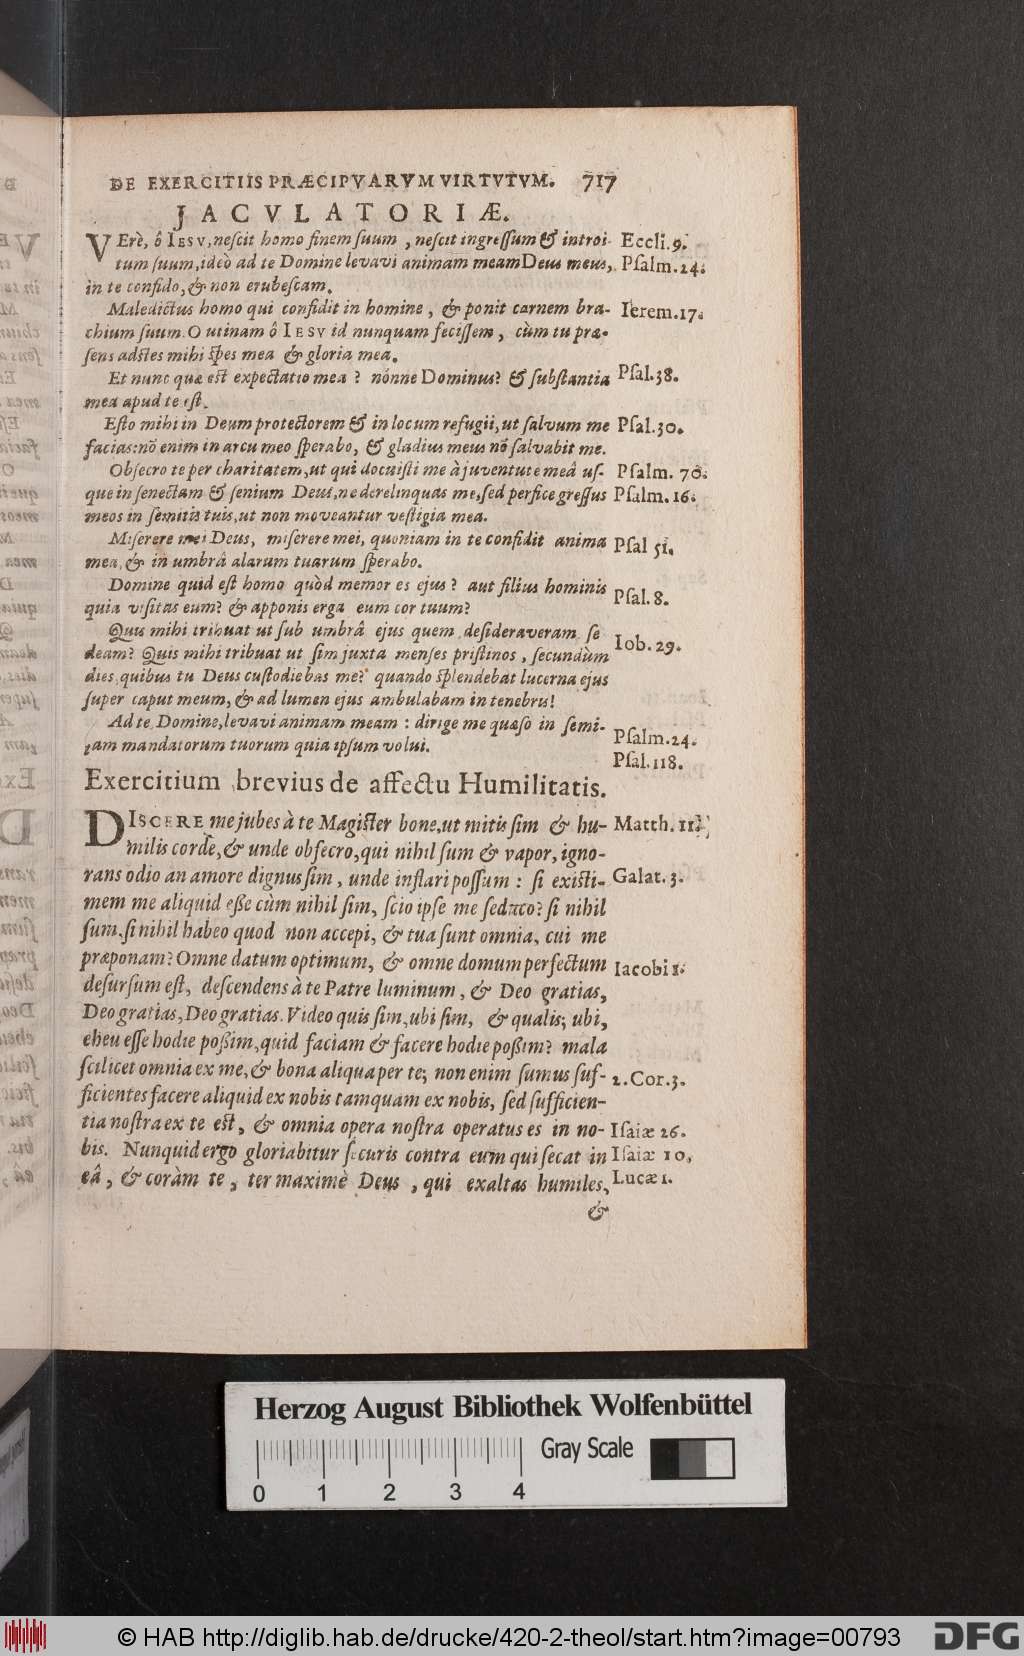 DE EXERCITIIS PRÆCIPVARVM VIRTVTVM. 717
JACVLATORIÆ.
VErè, ô IESV, nescit homo finem suum, nescit ingressum & introi- Eccli. 9.
tum suum, ideò ad te Domine levavi animam meam Deus meus, Psalm. 24.
in te confido, & non erubescam.
Maledictus homo qui confidit in homine, & ponit carnem bra- Ierem. 17.
chium suum. O utinam ô IESV id nunquam fecissem, cùm tu præ-
sens adstes mihi spes mea & gloria mea.
Et nunc quæ est expectatio mea? nónne Dominus? & substantia Psal. 38.
mea apud te est.
Esto mihi in Deum protectorem & in locum refugii, ut salvum me Psal. 30.
facias: nõ enim in arcu meo sperabo, & gladius meus nõ salvabit me.
Obsecro te per charitatem, ut qui docuisti me à juventute meâ us- Psalm. 70.
que in senectam & senium Deus, ne derelinquas me, sed perfice gressus Psalm. 16.
meos in semitis tuis, ut non moveantur vestigia mea.
Miserere mei Deus, miserere mei, quoniam in te confidit anima Psal 51.
mea, & in umbrâ alarum tuarum sperabo.
Domine quid est homo quòd memor es ejus? aut filius hominis Psal. 8.
quia visitas eum? & apponis erga eum cor tuum?
Quis mihi tribuat ut sub umbrâ ejus quem desideraveram se Iob. 29.
deam? Quis mihi tribuat ut sim juxta menses pristinos, secundùm
dies, quibus tu Deus custodiebas me? quando splendebat lucerna ejus
super caput meum, & ad lumen ejus ambulabam in tenebris!
Ad te Domine, levavi animam meam: dirige me quæso in semi- Psalm. 24.
tam mandatorum tuorum quia ipsum volui. Psal. 118.
Exercitium brevius de affectu Humilitatis.
DISCERE me jubes à te Magister bone, ut mitis sim & hu- Matth. 11.
milis corde, & unde obsecro, qui nihil sum & vapor, igno-
rans odio an amore dignus sim, unde inflari possum: si existi- Galat. 3.
mem me aliquid esse cùm nihil sim, scio ipse me seduco? si nihil
sum, si nihil habeo quod non accepi, & tua sunt omnia, cui me
præponam? Omne datum optimum, & omne domum perfectum Iacobi 1.
desursum est, descendens à te Patre luminum, & Deo gratias,
Deo gratias, Deo gratias. Video quis sim, ubi sim, & qualis; ubi,
eheu esse hodie possim, quid faciam & facere hodie possim? mala
scilicet omnia ex me, & bona aliqua per te; non enim sumus suf- 2. Cor. 3.
ficientes facere aliquid ex nobis tamquam ex nobis, sed sufficien-
tia nostra ex te est, & omnia opera nostra operatus es in no- Isaiæ 26.
bis. Nunquid ergo gloriabitur securis contra eum qui secat in Isaiæ 10,
eâ, & coràm te, ter maximè Deus, qui exaltas humiles, Lucæ 1.
&
Herzog August Bibliothek Wolfenbüttel
Gray Scale
0 1 2 3 4
© HAB http://diglib.hab.de/drucke/420-2-theol/start.htm?image=00793 DFG